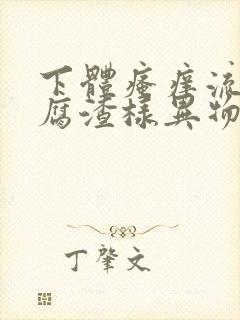 下體瘙癢流
腐渣樣異物
丁肇文